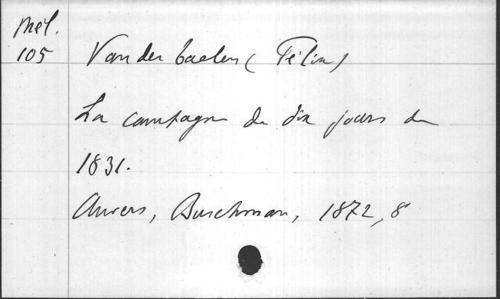 Mél.
105
Van der taelen (Félix)
La campagne de dix jours de
1831.
Anvers, Buschman, 1872, 8°